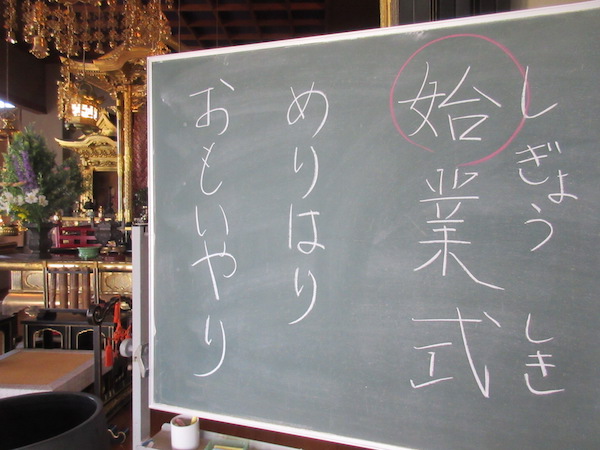 しぎょう しき
始業式
めりはり
おもいやり